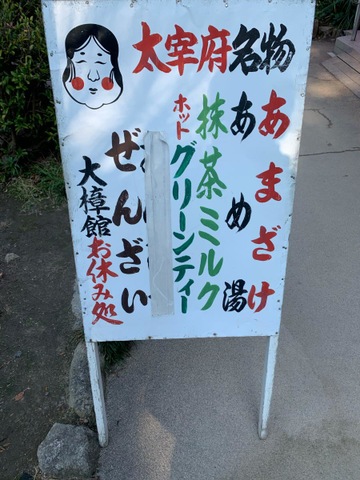 太宰府名物
あまざけ
あめ湯
抹茶ミルク
ホットグリーンティー
ぜんざい
大樟館お休み処